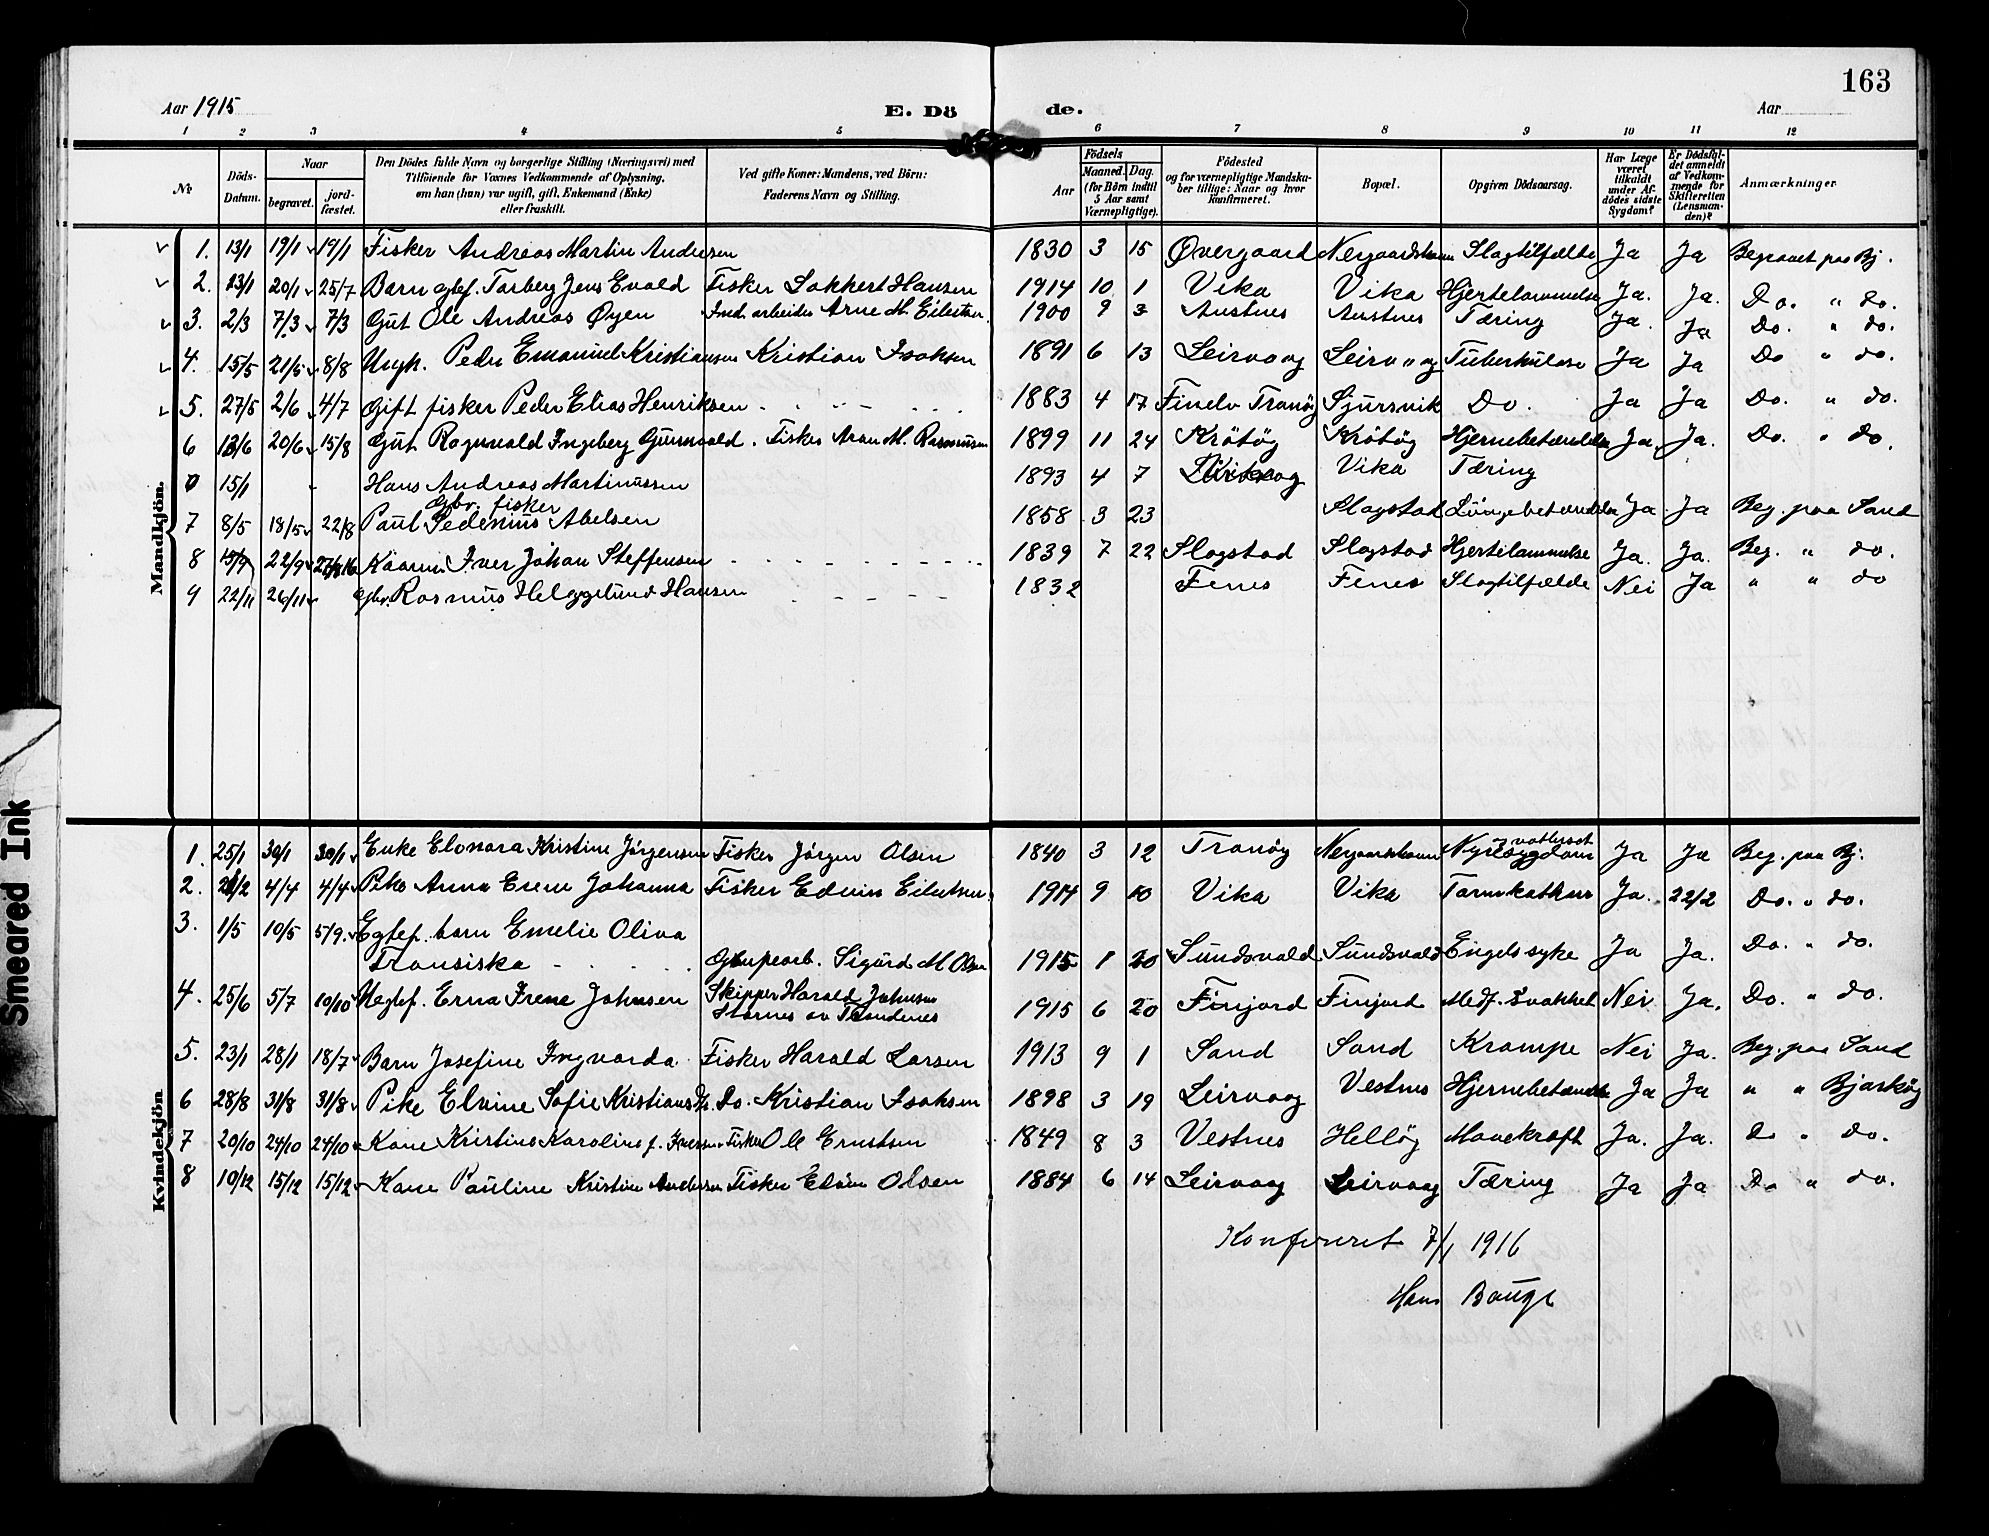 163
Aar 1915 E. Dö de. Aar
1 2 3 4 5 6 7 8 9 10 11 12
No
Döds-Datum.
Naar
begravet.
jordfæstet.
Den Dödes fulde Navn og borgerlige Stilling (Næringsvei) med
Tilföiende for Voxnes Vedkommende af Oplysning,
om han (hun) var ugift, gift, Enkemand (Enke)
eller fraskilt.
Ved gifte Koner: Mandens, ved Börn:
Faderens Navn og Stilling.
Födsels
Aar
Maaned. Dag.
(for Börn indtil
5 Aar samt
Værnepligtige).
Födested
og for værnepligtige Mandskaber tillige: Naar og hvor
konfirmeret.
Bopæl.
Opgiven Dödsaarsag.
Har Læge
været
tilkaldt
under Afdödes sidste
Sygdom?
Er Dödsfaldet anmeldt
af Vedkommende for
Skifteretten
(Lensmanden)?
Anmærkninger
Mandkjön.
1. 13/1 19/1 19/1 Fisker Andreas Martin Andersen 1830 3 15 Øvergaard Nergaardshavn Slagtilfælde Ja Ja Begravet paa Bj.
2. 13/1 20/1 25/7 Barn egtef. Torberg Jens Evald Fisker Hansen 1914 10 1 Vika Vika Hjertelammelse Ja. Ja. Do. " do.
3. 2/3 7/3 7/3 Gut Ole Andreas Øyen Ind. arbeider Arne M. 1900 9 3 Austnes Austnes Tæring Ja. Ja Do. " do.
4. 15/5 21/5 8/8 Ungk. Peder Emanuel Kristiansen Kristian Isaksen 1891 6 13 Leirvaag Leirvaag Tuberkulose Ja Ja Do " do.
5. 27/5 2/6 4/7 Gift fisker Peder Elias Henriksen 1883 4 17 Tranöy Sjursvik Do. Ja Ja Do. " do.
6 13/6 20/6 15/8 Gut Ragnvald Ingeberg Gunvald. Fisker Aron M. Rasmussen 1899 11 24 Krötöy Krötöy Hjernebetændelse Ja. Ja. Do. " do.
0 15/1 Hans Andreas Martinussen 1893 4 7 Vika Tæring
Gbr. fisker
7 8/5 18/5 22/8 Paul Pedenius Abelsen 1858 3 23 Slagstad Lungebetændelse Ja Ja Beg. paa Sand
8 15/9 22/9 Iver Johan Steffensen 1839 7 22 Slagstad Slagstad Hjertelammelse Ja. Ja. Beg. " do.
9 22/11 26/11 Gbr. Rasmus Helggelund Hansen 1832 Fenes Fenes Slagtilfælde Nei Ja " " do
Kvindekjön
1. 25/1 30/1 30/1 Enke Elonora Kristine Jørgensen Fisker Jørgen Olsen 1840 3 12 Tranöy Nergaardshavn Nyresygdom Ja Ja Beg. paa Bj.
2. 4/4 4/4 Pike Anna Erene Johanna Fisker Edvin Eilertsen 1914 9 10 Vika Vika Tarmkathar Ja. 22/2 Do. " do.
3. 1/5 10/5 5/9. Egtef. barn Emelie Oliva
Fransiska Sigurd M Olsen 1915 1 20 Sundsvald Sundsvald Engelssyke Ja Ja. Do. " do.
4. 25/6 5/7 10/10 Uegtef. Erna Irene Johnsen Skipper Harald Johnsen
Stornes av Trondenes 1915 6 20 Finjord Finjord Medf. svakhet Nei Ja. Do. " do.
5. 23/1 28/1 18/7 Barn Josefine Ingvarda. Fisker Harald Larsen 1913 9 1 Sand Sand Krampe Nei Ja. Beg. paa Sand
6 28/8 31/8 31/8 Pike Elvine Sofie Do. Kristian Isaksen 1898 3 19 Leirvaag Vestnes Hjernebetændelse Ja Ja " " Bjarköy
7 20/10 24/10 24/10 Kone Kristine Karoline f. Iversen Fisker Ole Ernstsen 1849 8 3 Vestnes Hellöy Mavekræft Ja. Ja. Do " Do.
8 10/12 15/12 15/12 Kone Pauline Kristine Andersen Fisker Edvin Olsen 1884 6 14 Leirvaag Leirvaag Tæring Ja Ja Do " do.
Konfereret 7/1 1916
Hans Bauge
Smeared Ink